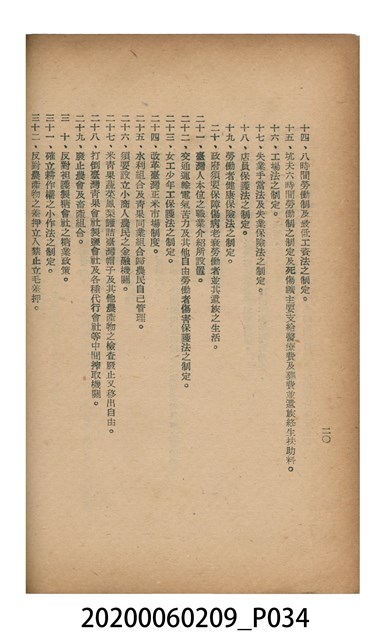 二〇
十四、八時間勞働制及最低工資法之制定。
十五、坑夫六時間勞働制之制定及死傷雇主要支給醫療費及葬費並遺族終生扶助料。
十六、工場法之制定。
十七、失業手當法及失業保險法之制定。
十八、店員保護法之制定。
十九、勞働者健康保險法之制定。
二十、政府須要保障傷病老衰勞働者並其遺族之生活。
二十一、臺灣人本位之職業介紹所設置。
二十二、交通運輸電氣苦力及其他自由勞働者傷害保護法之制定。
二十三、女工少年工保護法之制定。
二十四、改革臺灣正米市場制度。
二十五、水利組合及青果同業組合歸農民自己管理。
二十六、須要設立小商人農民之金融機關。
二十七、米青果蔬菜鳳梨罐詰臺灣帽子及其他農產物之檢查廢止又移出自由。
二十八、打倒臺灣青果會社製鹽會社及各種代行會社等中間搾取機關。
二十九、廢止農會及畜產組合。
三十、反對袒護製糖會社之糖業政策。
三十一、確立耕作權之小作法之制定。
三十二、反對農產物之差押立入禁止立毛差押。
20200060209_P034